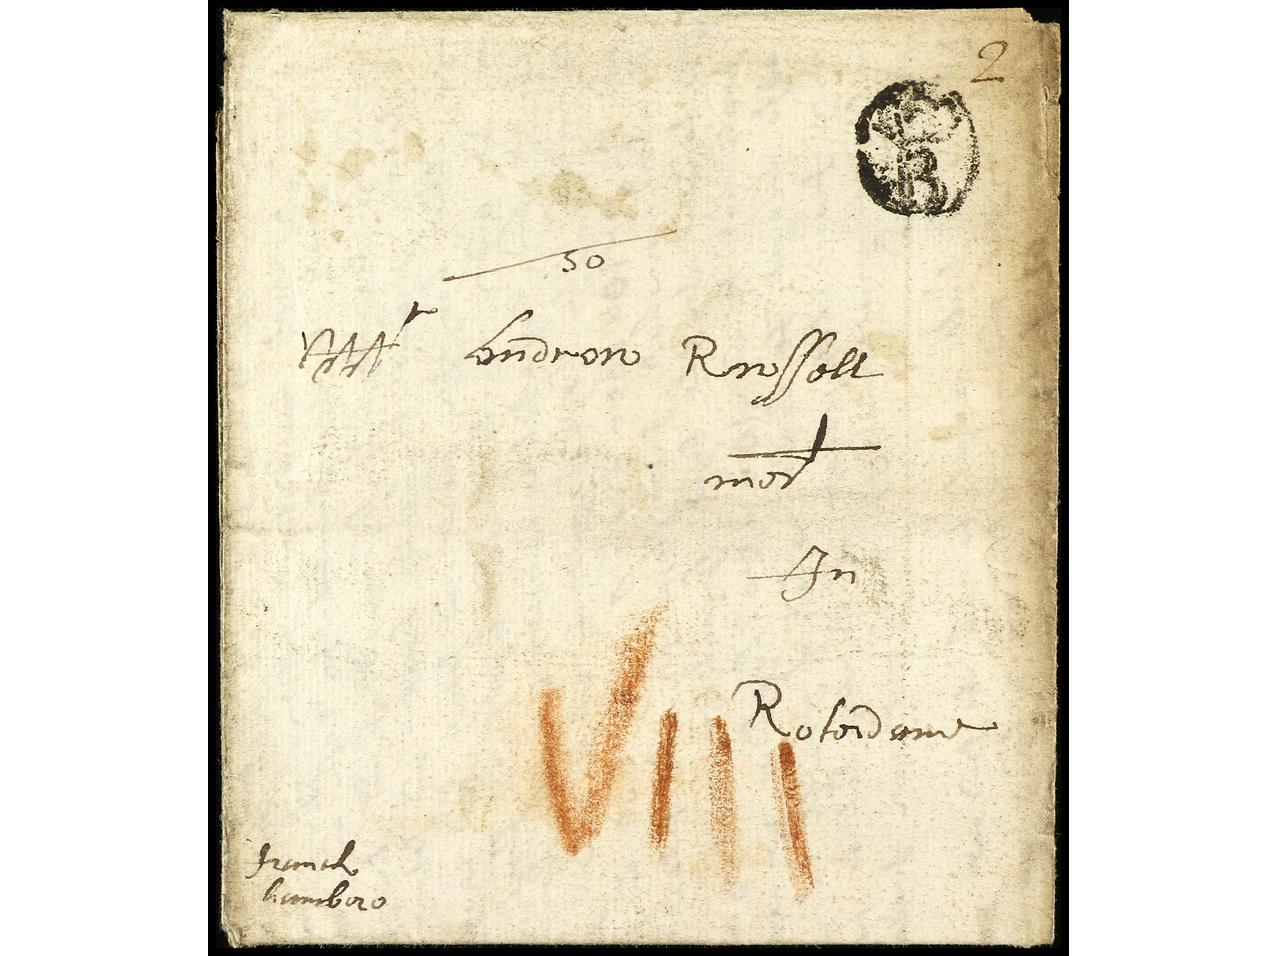 2
R
50
Mr Andrew Russell
mert
In
Roterdame
VIII
french
hamboro